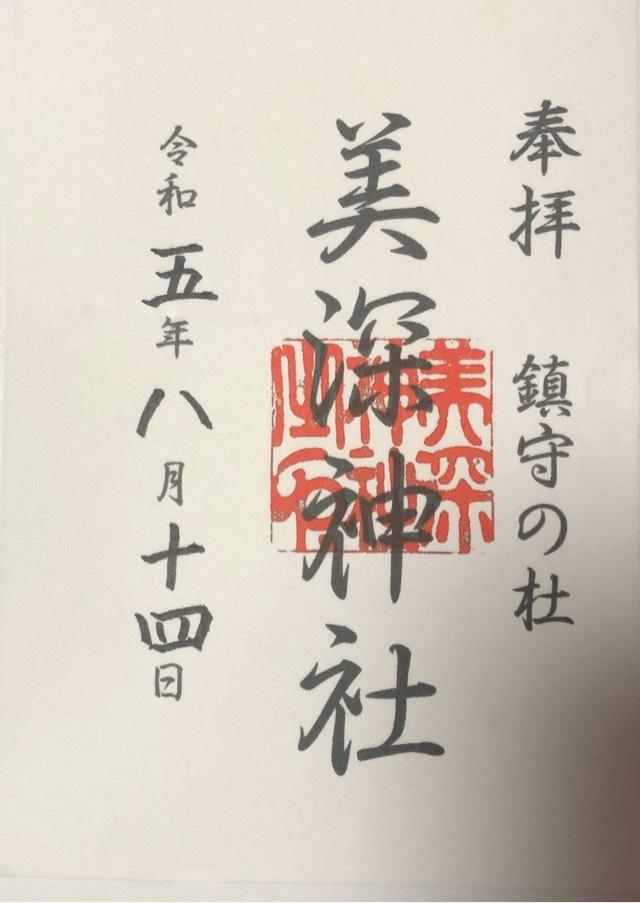 奉拝 鎮守の杜
美深神社
美深
神社
之印
令和五年八月十四日